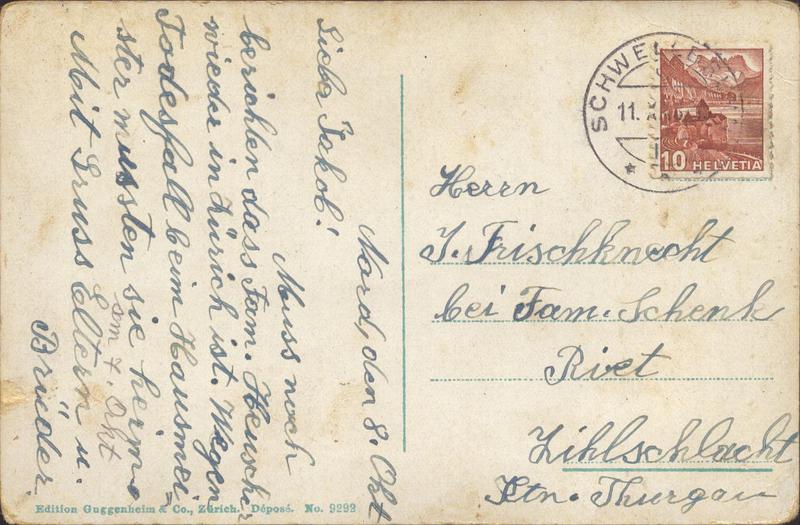 Nord, den 8. Okt
Lieber Jakob!
Muss noch
berichten dass Fam. Heuscher
wieder in Zürich ist. Wegen
Todesfall beim Hausmei-
ster mussten sie heim
am 7. Okt
Mit Gruss Eltern u.
Brüder.
SCHWELLBR
11.
10 HELVETIA
Herrn
J. Frischknecht
bei Fam. Schenk
Riet
Zihlschlacht
Ktn. Thurgau
Edition Guggenheim & Co., Zürich. Déposé. No. 9292